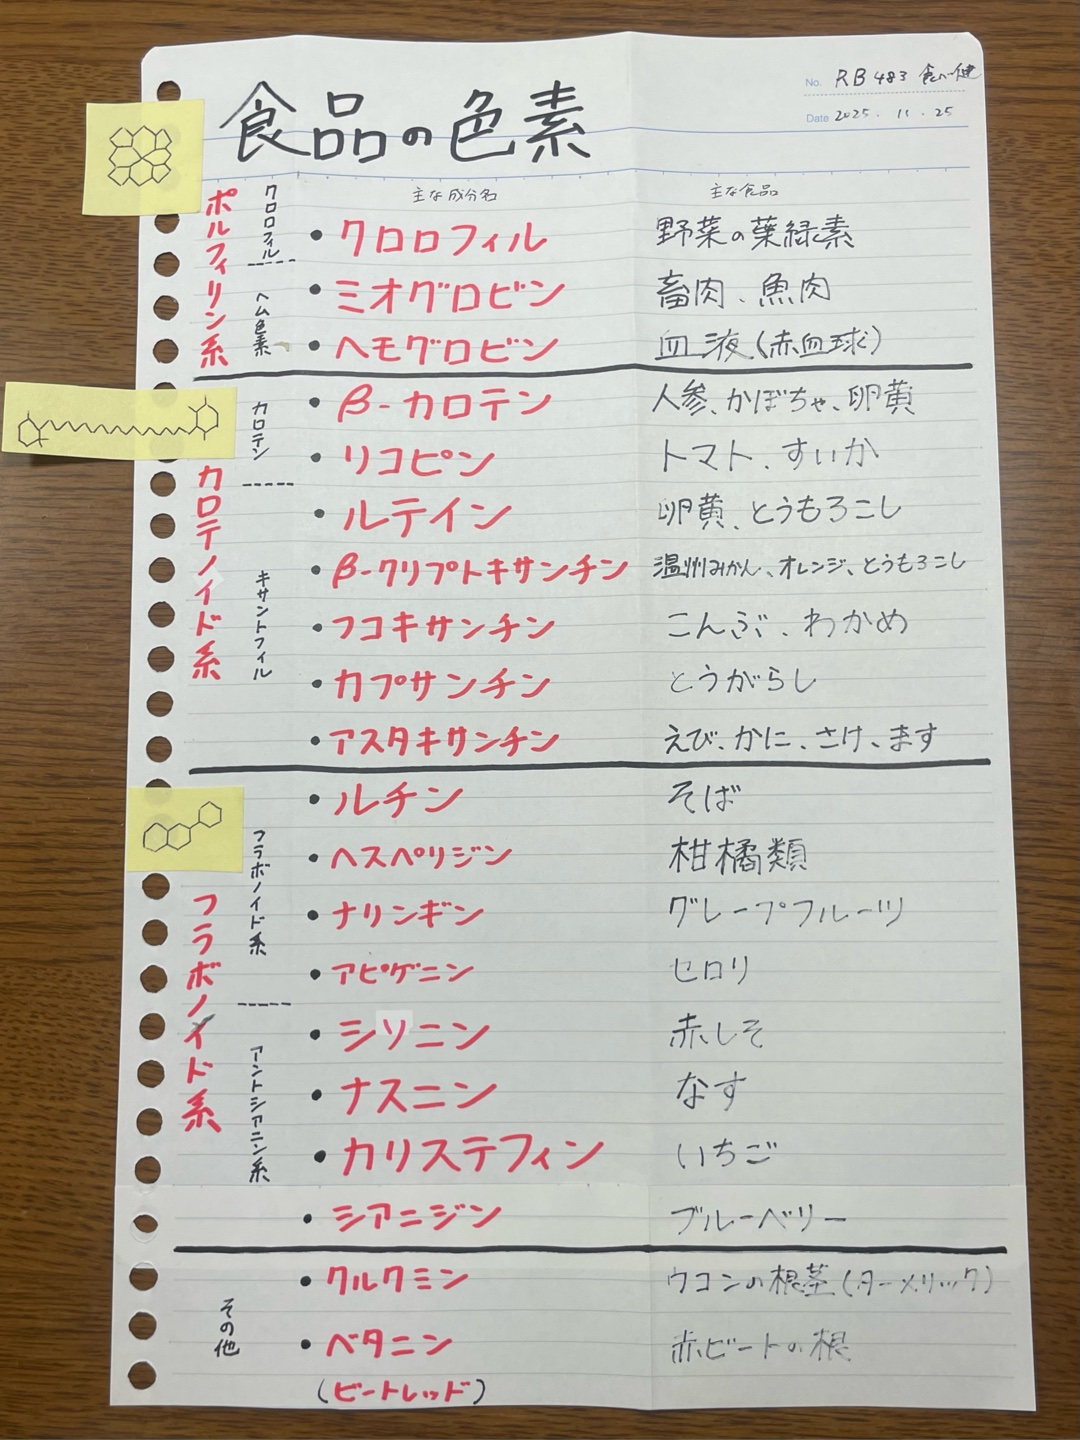 No. RB 483 食べ健
Date 2025. 11. 25
食品の色素
主な成分名 主な食品
ポルフィリン系
クロロフィル
・クロロフィル 野菜の葉緑素
ヘム色素
・ミオグロビン 畜肉、魚肉
・ヘモグロビン 血液(赤血球)
カロテノイド系
カロテン
・β-カロテン 人参、かぼちゃ、卵黄
・リコピン トマト、すいか
キサントフィル
・ルテイン 卵黄、とうもろこし
・β-クリプトキサンチン 温州みかん、オレンジ、とうもろこし
・フコキサンチン こんぶ、わかめ
・カプサンチン とうがらし
・アスタキサンチン えび、かに、さけ、ます
フラボノイド系
フラボノイド系
・ルチン そば
・ヘスペリジン 柑橘類
・ナリンギン グレープフルーツ
・アピゲニン セロリ
アントシアニン系
・シソニン 赤しそ
・ナスニン なす
・カリステフィン いちご
・シアニジン ブルーベリー
その他
・クルクミン ウコンの根茎(ターメリック)
・ベタニン 赤ビートの根
(ビートレッド)